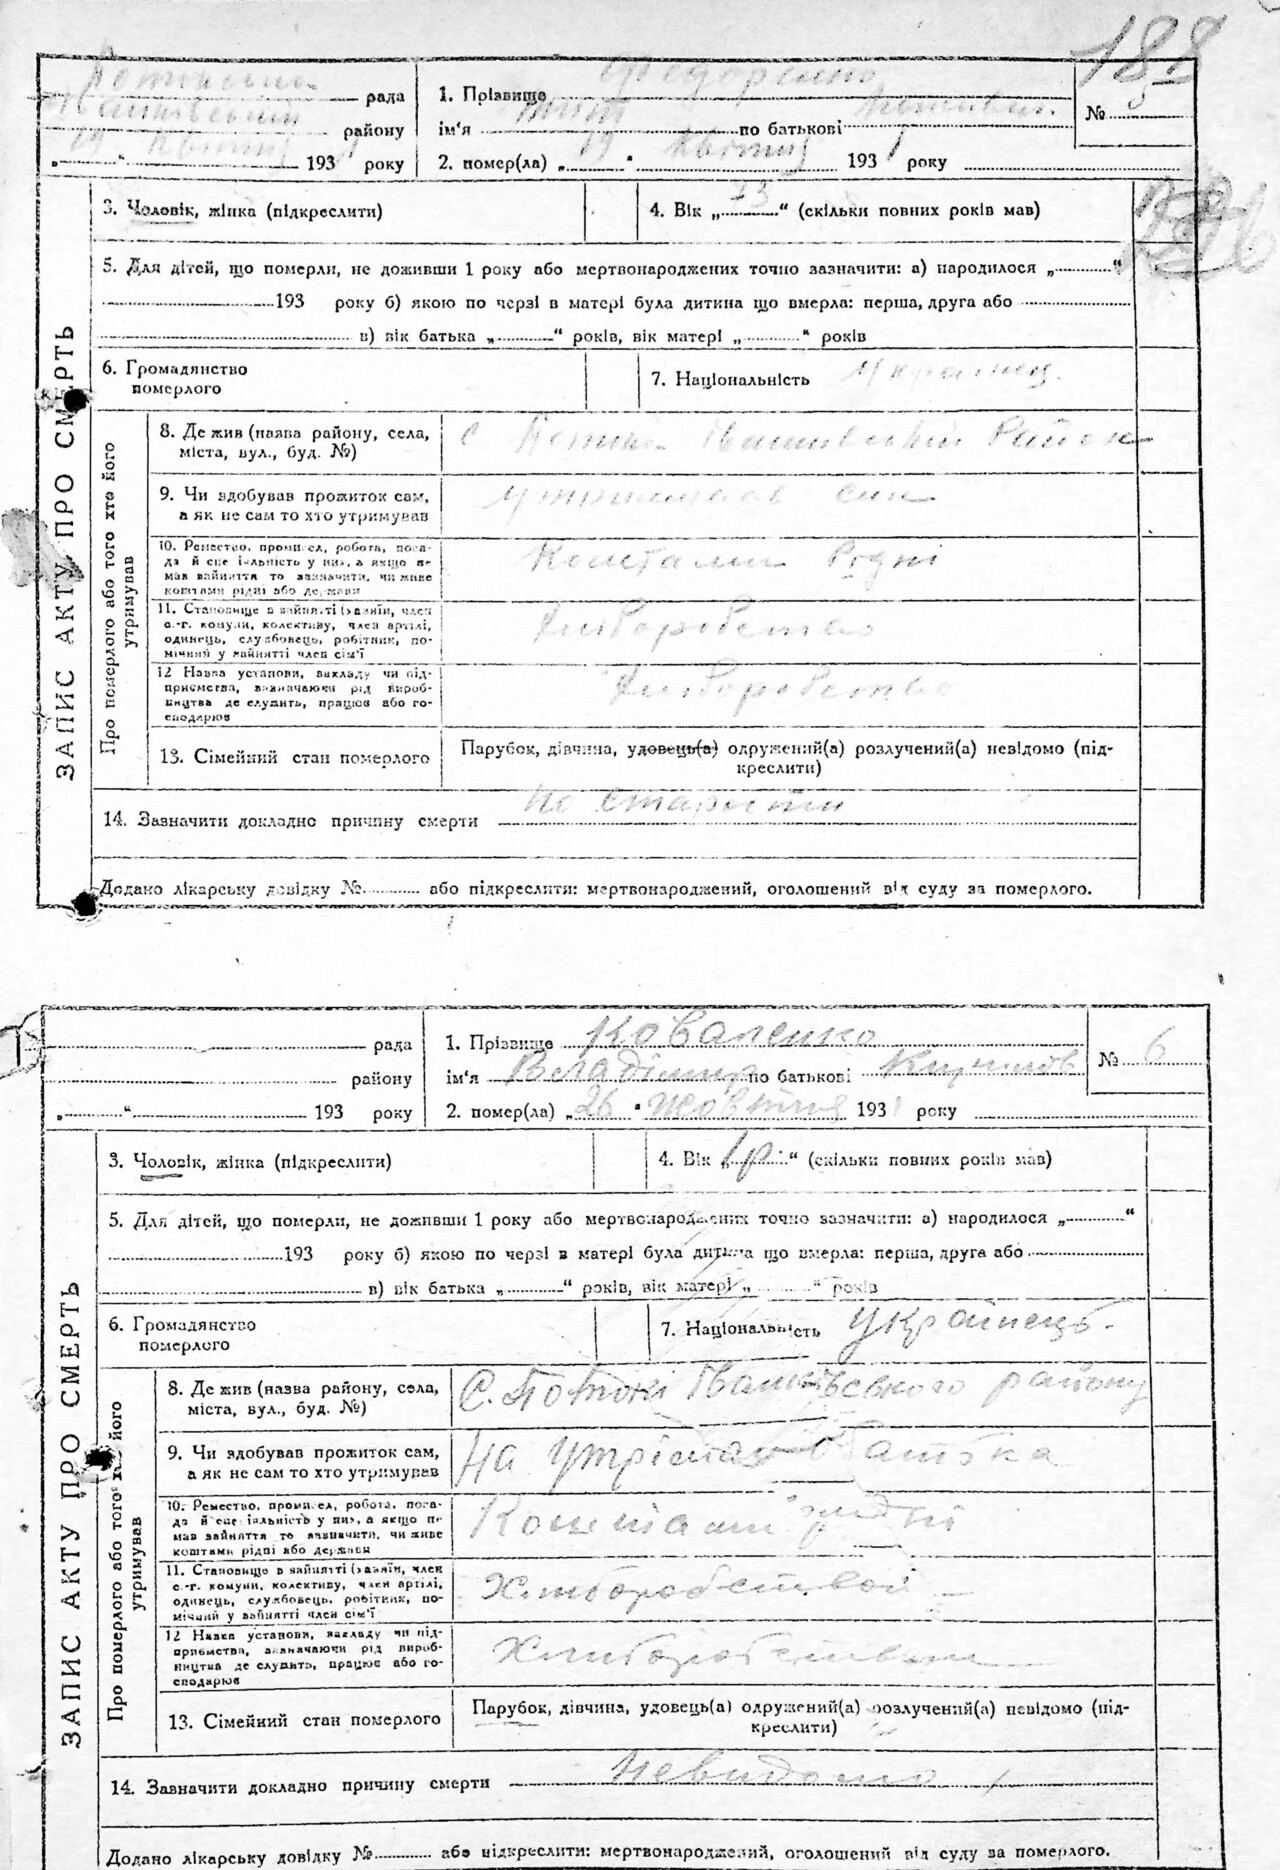 188
рада
району
193 року
1. Прізвище Федоренко
ім'я по батькові
2. помер(ла) „19" квітня 1931 року
№ 5
ЗАПИС АКТУ ПРО СМЕРТЬ
3. Чоловік, жінка (підкреслити)
4. Вік „ " (скільки повних років мав)
5. Для дітей, що померли, не доживши 1 року або мертвонароджених точно зазначити: а) народилося „ "
193 року б) якою по черзі в матері була дитина що вмерла: перша, друга або
в) вік батька „ " років, вік матері „ " років
6. Громадянство
померлого
7. Національність Українец.
Про померлого або того хто його
утримував
8. Де жив (назва району, села,
міста, вул., буд. №)
с Потоки Іванківський Район
9. Чи здобував прожиток сам,
а як не сам то хто утримував
утримував син
10. Ремество, промисел, робота, поса-
да й спеціяльність у них, а якщо не
мав зайняття то зазначити, чи живе
коштами рідні або держави
Коштами Родні
11. Становище в зайнятті (хазяїн, член
с.-г. комуни, колективу, член артілі,
одинець, службовець, робітник, по-
мічний у зайнятті член сім'ї
Хліборобство
12 Назва установи, закладу чи під-
приємства, зазначаючи рід вироб-
ництва де служить, працює або го-
сподарює
Хліборобство
13. Сімейний стан померлого
Парубок, дівчина, удовець(а) одружений(а) розлучений(а) невідомо (під-
креслити)
14. Зазначити докладно причину смерти по старости
Додано лікарську довідку № або підкреслити: мертвонароджений, оголошений від суду за померлого.
рада
району
„ " 193 року
1. Прізвище Коваленко
ім'я Владімир по батькові Кирилов
2. помер(ла) „26" жовтня 1931 року
№ 6
ЗАПИС АКТУ ПРО СМЕРТЬ
3. Чоловік, жінка (підкреслити)
4. Вік „1 р." (скільки повних років мав)
5. Для дітей, що померли, не доживши 1 року або мертвонароджених точно зазначити: а) народилося „ "
193 року б) якою по черзі в матері була дитина що вмерла: перша, друга або
в) вік батька „ " років, вік матері „ " років
6. Громадянство
померлого
7. Національність Українець.
Про померлого або того хто його
утримував
8. Де жив (назва району, села,
міста, вул., буд. №)
С. Потокі Іванківського району
9. Чи здобував прожиток сам,
а як не сам то хто утримував
На утріманю батька
10. Ремество, промисел, робота, поса-
да й спеціяльність у них, а якщо не
мав зайняття то зазначити, чи живе
коштами рідні або держави
Коштами рідні
11. Становище в зайнятті (хазяїн, член
с.-г. комуни, колективу, член артілі,
одинець, службовець, робітник, по-
мічний у зайнятті член сім'ї
12 Назва установи, закладу чи під-
приємства, зазначаючи рід вироб-
ництва де служить, працює або го-
сподарює
13. Сімейний стан померлого
Парубок, дівчина, удовець(а) одружений(а) розлучений(а) невідомо (під-
креслити)
14. Зазначити докладно причину смерти Невидомо
Додано лікарську довідку № або підкреслити: мертвонароджений, оголошений від суду за померлого.